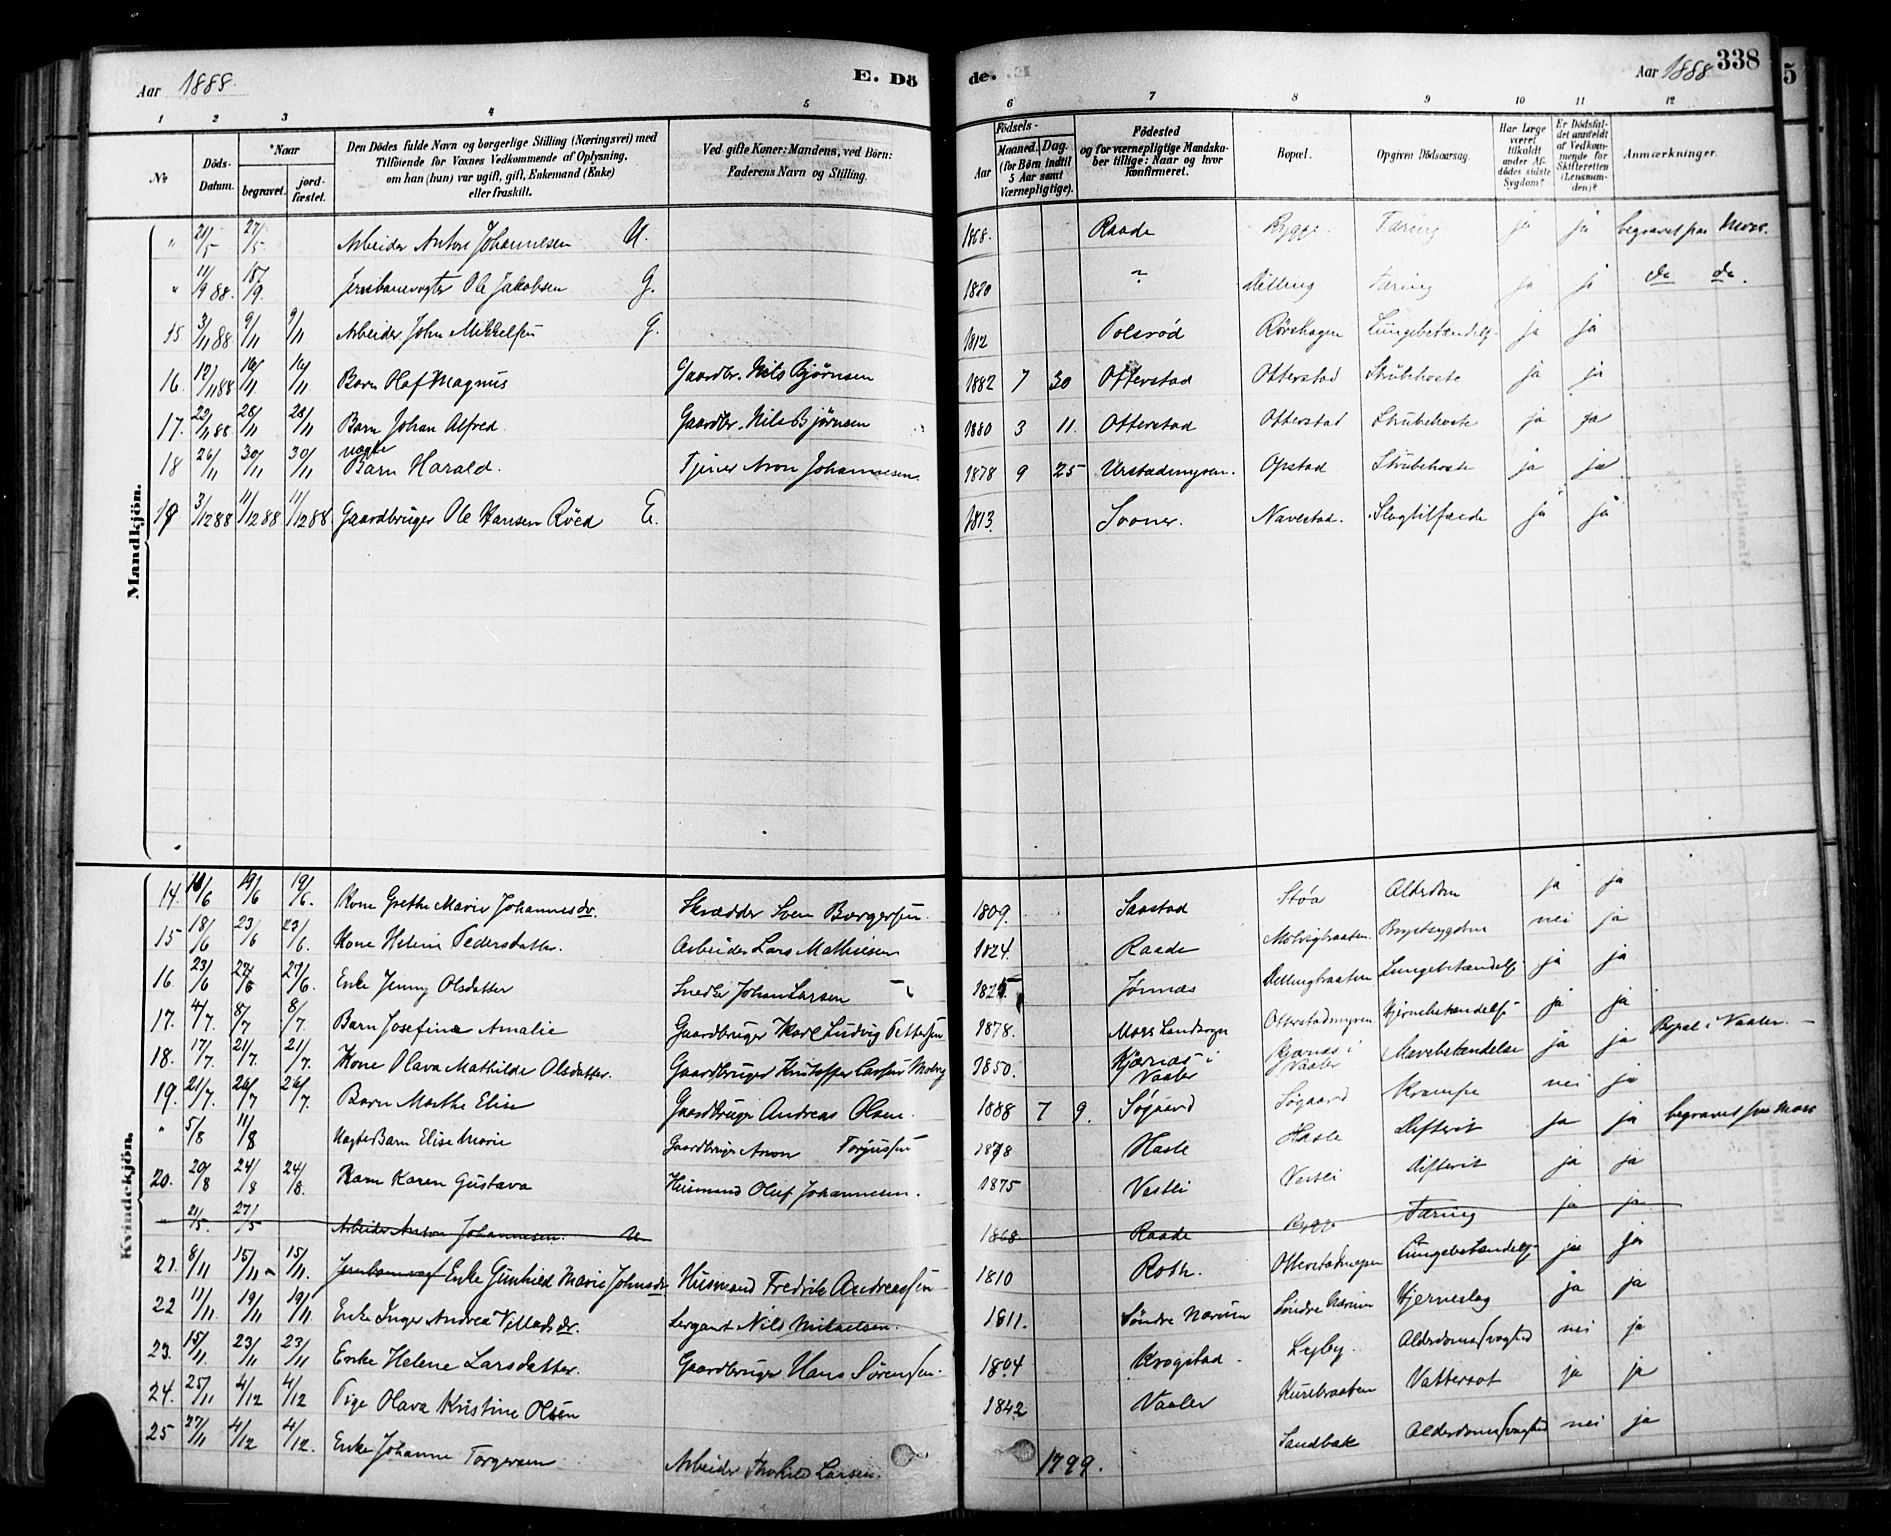 Aar 1888. E. Dö de. Aar 1888 338
1 2 3 4 5 6 7 8 9 10 11 12
No Döds-Datum. Naar begravet. jord-fæstet. Den Dödes fulde Navn og borgerlige Stilling (Næringsvei) med Tilföiende for Voxnes Vedkommende af Oplysning, om han (hun) var ugift, gift, Enkemand (Enke) eller fraskilt. Ved gifte Koner: Mandens, ved Børn: Faderens Navn og Stilling. Födsels- Aar Maaned. Dag. (for Börn indtil 5 Aar samt Værnepligtige). Födested og for værnepligtige Mandskaber tillige: Naar og hvor konfirmeret. Bopæl. Opgiven Dödsaarsag. Har Læge været tilkaldt under Afdödes sidste Sygdom? Er Dödsfaldet anmeldt af Vedkommende for Skifteretten (Lensmanden)? Anmærkninger.
Mandkjön.
" 21/5 27/5 Arbeider Anton Johannesen U. 1868. Raade Rygge Tæring ja ja begravet paa Moss.
" 11/9 88. 18/9. Jernbanevogter Ole Jakobsen G. 1820 " Dilling Tæring ja ja do do.
15 3/11 88 9/11 9/11 Arbeider John Mikkelsen G. 1812 Polsrød Rørshagen Lungebetændelse ja ja
16. 12/11 88 16/11 16/11 Barn Olaf Magnus Gaardbr. Nils Bjørnsen 1882 7 30 Otterstad Otterstad Strubehoste ja ja
17. 22/11 88 28/11 28/11 Barn Johan Alfred Gaardbr. Nils Bjørnsen 1880 3 11. Otterstad Otterstad Strubehoste ja ja
18 26/11 30/11 30/11 uægte Barn Harald. Tjener Aron Johannesen. 1878 9 25 Urstadmyren. Opstad Strubehoste ja ja
19 3/12 88 11/12 88 11/12 88. Gaardbruger Ole Hansen Röed E. 1813. Soner. Navestad. Slagtilfælde ja ja
Kvindekjön.
14. 16/6 19/6 19/6. Kone Grethe Marie Johannesdr. Skrædder Sven Borgersen. 1809. Saastad Støa Alderdom ja ja
15 18/6 23/6 23/6. Kone Helene Pedersdatter. Arbeider Lars Mathiesen 1824. Raade Molvigbraaten. Brystsygdom nei ja
16. 23/6 27/6 27/6. Enke Jenny Olsdatter Snedker Johan Larsen 1825 Jønnæs Dillingbraaten Lungebetændelse ja ja
17. 4/7. 8/7 8/7. Barn Josefine Amalie Gaardbruger Karl Ludvig Pettersen 1878. Moss Landsogn Otterstadmyren Hjernebetændelse ja ja
18. 17/7 21/7. 21/7. Kone Olava Mathilde Olsdatter. Gaardbruger Kristoffer Larsen Molvig 1850. Kjærnæs i Vaaler Kjærnæs i Vaaler Mavebetændelse ja ja Bopæl i Vaaler.
19. 21/7. 26/7 26/7. Barn Marthe Elise Gaardbruger Andreas Olsen. 1888 7 9. Søgaard Søgaard Krampe nei ja
" 5/8 11/8 Uægte Barn Elise Marie Gaardbruger Aron Torgussen 1878 Hasle Hasle Difterit ja ja begravet paa Moss
20. 20/8 24/8 24/8. Barn Karen Gustava Husmand Oluf Johannesen. 1875 Vestli Vestli Difterit ja ja
" 21/5. 27/5 Arbeider Anton Johannesen. U 1868 Raade Rygge Tæring ja ja
21. 8/11 15/11 15/11. Jernbanevogt Enke Gunhild Marie Johnsdr Husmand Fredrik Andreassen 1810 Roth. Otterstadmyren Lungebetændelse ja ja
22 11/11 19/11 19/11 Enke Inger Andrea Villadsdr. Sergant Nils Mikaelsen. 1811. Søndre Navrim Søndre Navrim Hjerneslag ja ja
23. 15/11. 23/11 23/11 Enke Helene Larsdatter. Gaardbruger Hans Sørensen. 1804 Krogstad. Lyby. Alderdomssvaghed nei ja
24. 25/11 4/12 4/12 Pige Olava Kristine Olsen 1842 Vaaler Kurebraaten Vattersot ja ja
25 27/11 4/12 4/12. Enke Johanne Torgersen Arbeider Thorkild Larsen. 1799. Sandbak Alderdomssvaghed nei ja